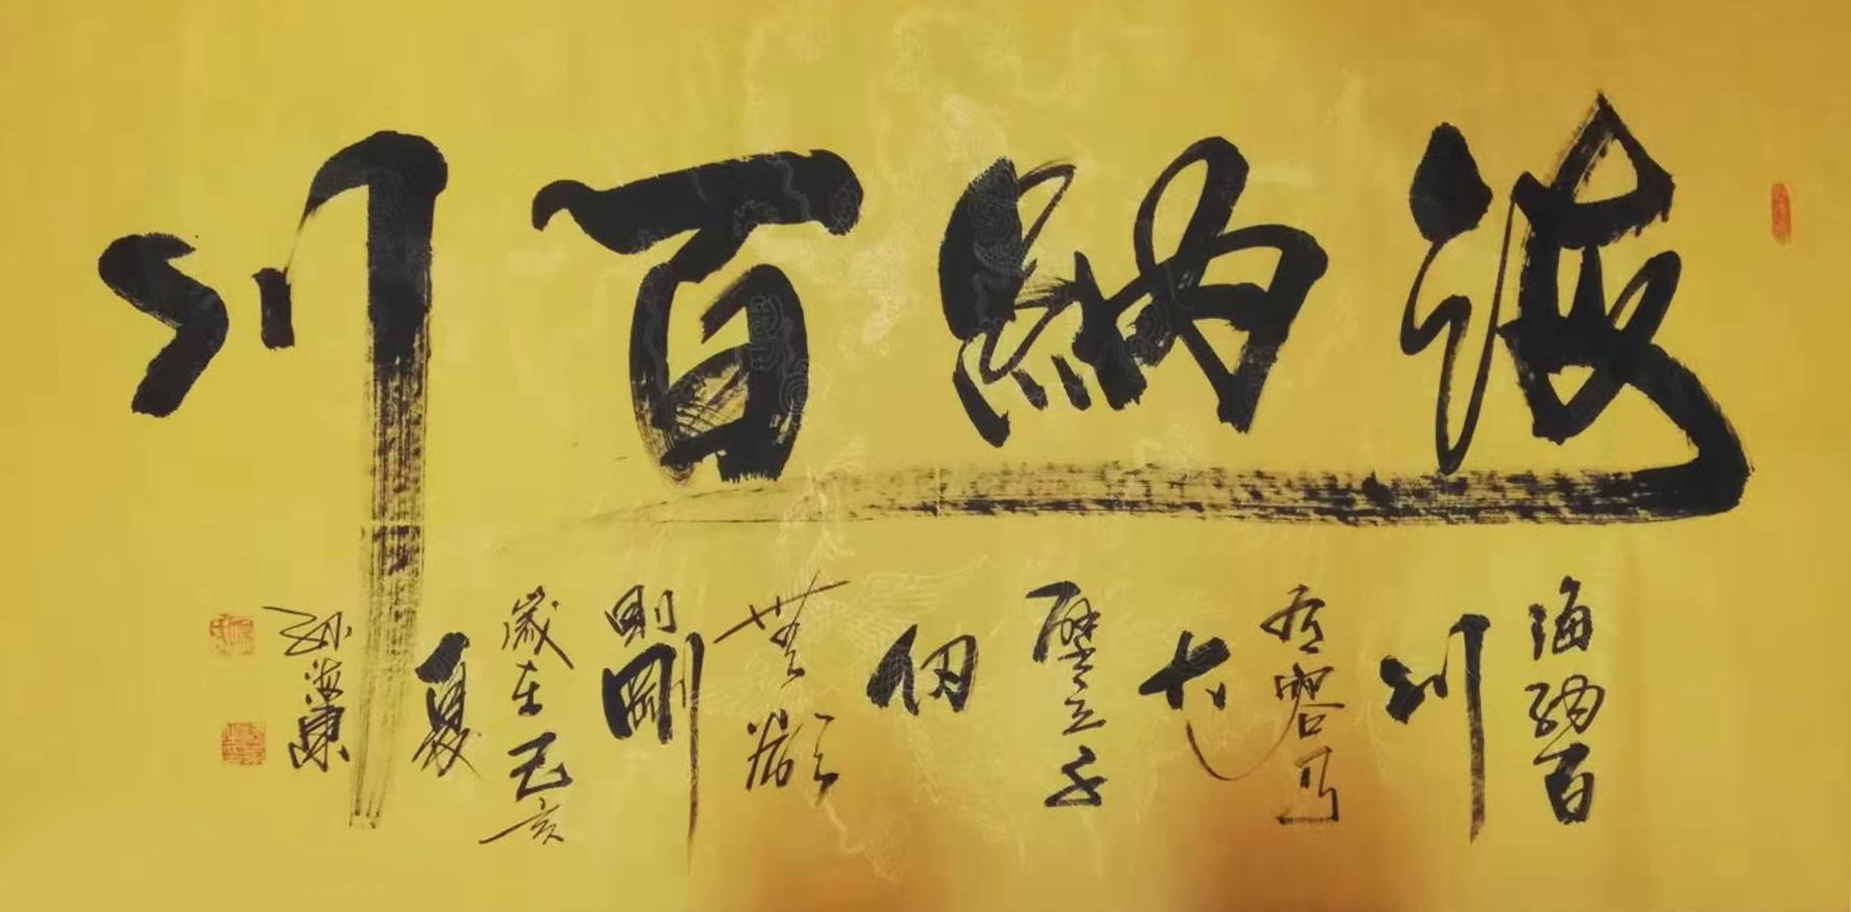 海納百川
海納百
川
有容乃
大
壁立千
仞
無欲
則剛
歲在己亥
夏
孫海東